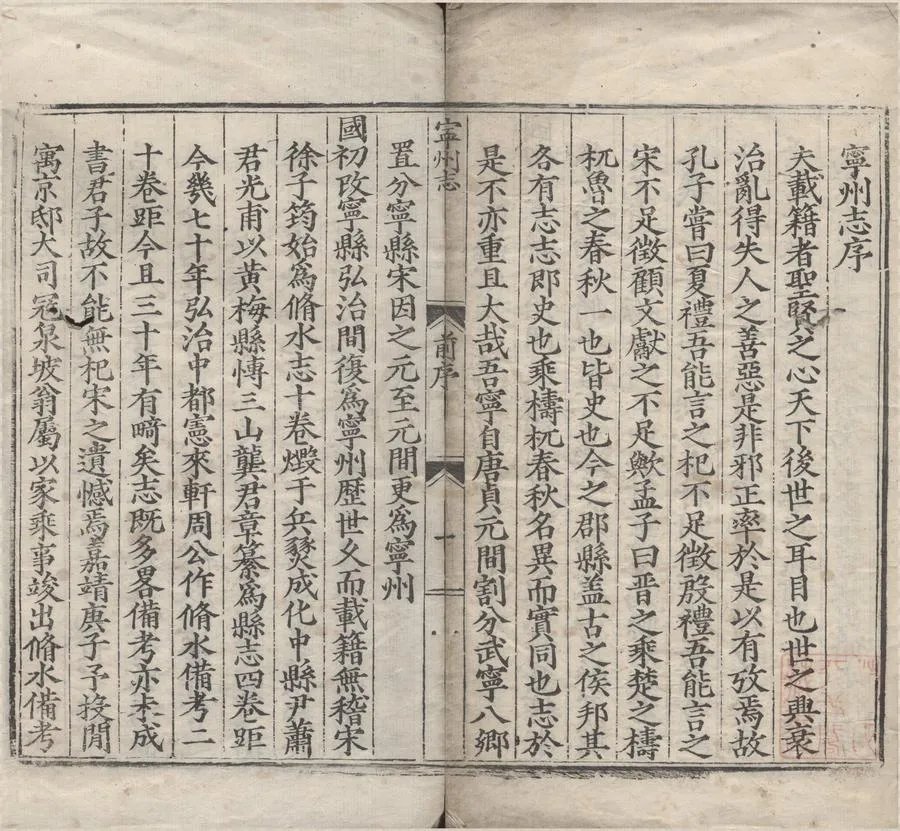 寧州志序
夫載籍者聖賢之心天下後世之耳目也世之興衰
治亂得失人之善惡是非邪正率於是以有攷焉故
孔子嘗曰夏禮吾能言之杞不足徵殷禮吾能言之
宋不足徵顧文獻之不足歟孟子曰晋之乘楚之檮
杌魯之春秋一也皆史也今之郡縣盖古之侯邦其
各有志志即史也乘檮杌春秋名異而實同也志於
是不亦重且大哉吾寧自唐貞元間割分武寧八鄉
寧州志
前序
一
置分寧縣宋因之元至元間更爲寧州
國初改寧縣弘治間復爲寧州歷世久而載籍無稽宋
徐子筠始爲脩水志十卷燬于兵燹成化中縣尹蕭
君光甫以黄梅縣愽三山龔君章纂爲縣志四卷距
今幾七十年弘治中都憲來軒周公作脩水備考二
十卷距今且三十年有畸矣志既多畧備考亦未成
書君子故不能無杞宋之遺憾焉嘉靖庚子予投閒
寓京邸大司冦泉坡翁屬以家乘事竣出脩水備考